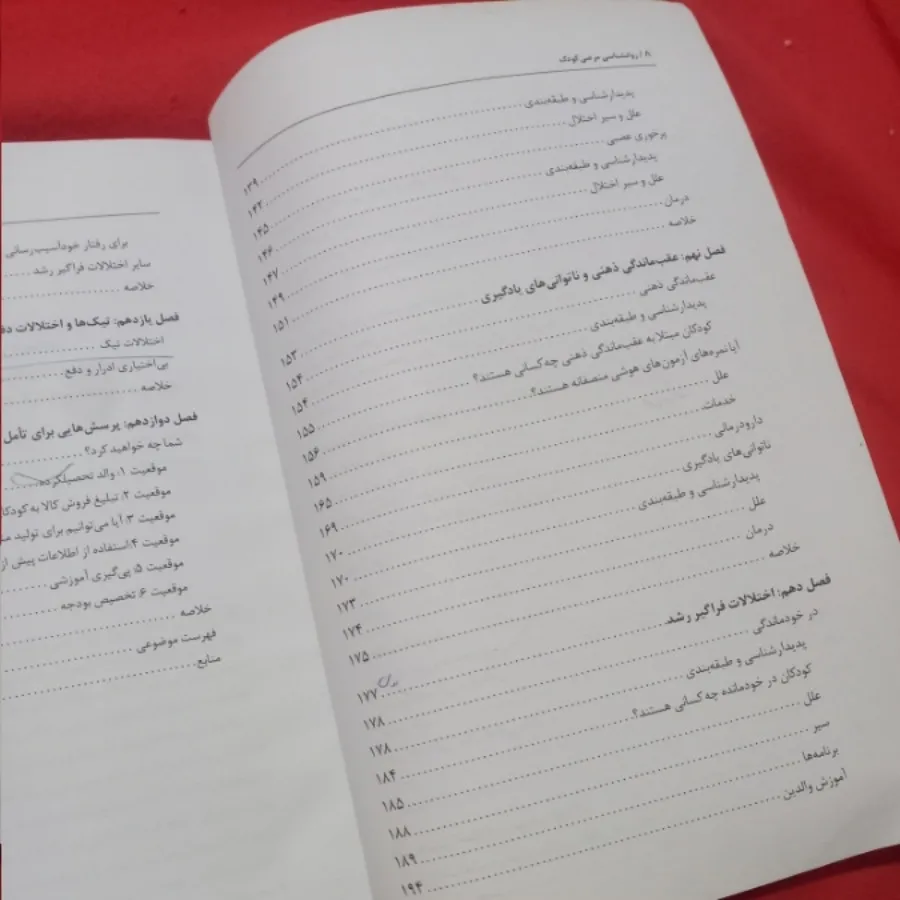 ۸ / روانشناسی مرضی کودک
پدیدارشناسی و طبقه‌بندی ........ ۱۳۹
علل و سیر اختلال ........ ۱۴۲
پرخوری عصبی ........ ۱۴۵
پدیدارشناسی و طبقه‌بندی ........ ۱۴۶
علل و سیر اختلال ........ ۱۴۷
درمان ........ ۱۴۹
خلاصه ........ ۱۵۱
فصل نهم: عقب‌ماندگی ذهنی و ناتوانی‌های یادگیری ........ ۱۵۳
عقب‌ماندگی ذهنی ........ ۱۵۴
پدیدارشناسی و طبقه‌بندی ........ ۱۵۴
کودکان مبتلا به عقب‌ماندگی ذهنی چه کسانی هستند؟ ........ ۱۵۵
آیا نمره‌های آزمون‌های هوشی منصفانه هستند؟ ........ ۱۵۶
علل ........ ۱۵۹
خدمات ........ ۱۶۵
دارودرمانی ........ ۱۶۹
ناتوانی‌های یادگیری ........ ۱۷۰
پدیدارشناسی و طبقه‌بندی ........ ۱۷۰
علل ........ ۱۷۳
درمان ........ ۱۷۴
خلاصه ........ ۱۷۵
فصل دهم: اختلالات فراگیر رشد ........ ۱۷۷
در خودماندگی ........ ۱۷۸
پدیدارشناسی و طبقه‌بندی ........ ۱۷۸
کودکان در خودمانده چه کسانی هستند؟ ........ ۱۸۴
علل ........ ۱۸۵
سیر ........ ۱۸۸
برنامه‌ها ........ ۱۸۹
آموزش والدین ........ ۱۹۴
برای رفتار خودآسیب‌رسانی
سایر اختلالات فراگیر رشد ........
خلاصه ........
فصل یازدهم: تیک‌ها و اختلالات
اختلالات تیک ........
بی‌اختیاری ادرار و دفع ........
خلاصه ........
فصل دوازدهم: پرسش‌هایی برای تأمل
شما چه خواهید کرد؟ ........
موقعیت ۱. والد تحصیلکرده ........
موقعیت ۲. تبلیغ فروش کالا به
موقعیت ۳. آیا می‌توانیم برای تولید
موقعیت ۴. استفاده از اطلاعات پیش از
موقعیت ۵. پی‌گیری آموزشی ........
موقعیت ۶. تخصیص بودجه ........
خلاصه ........
فهرست موضوعی ........
منابع ........